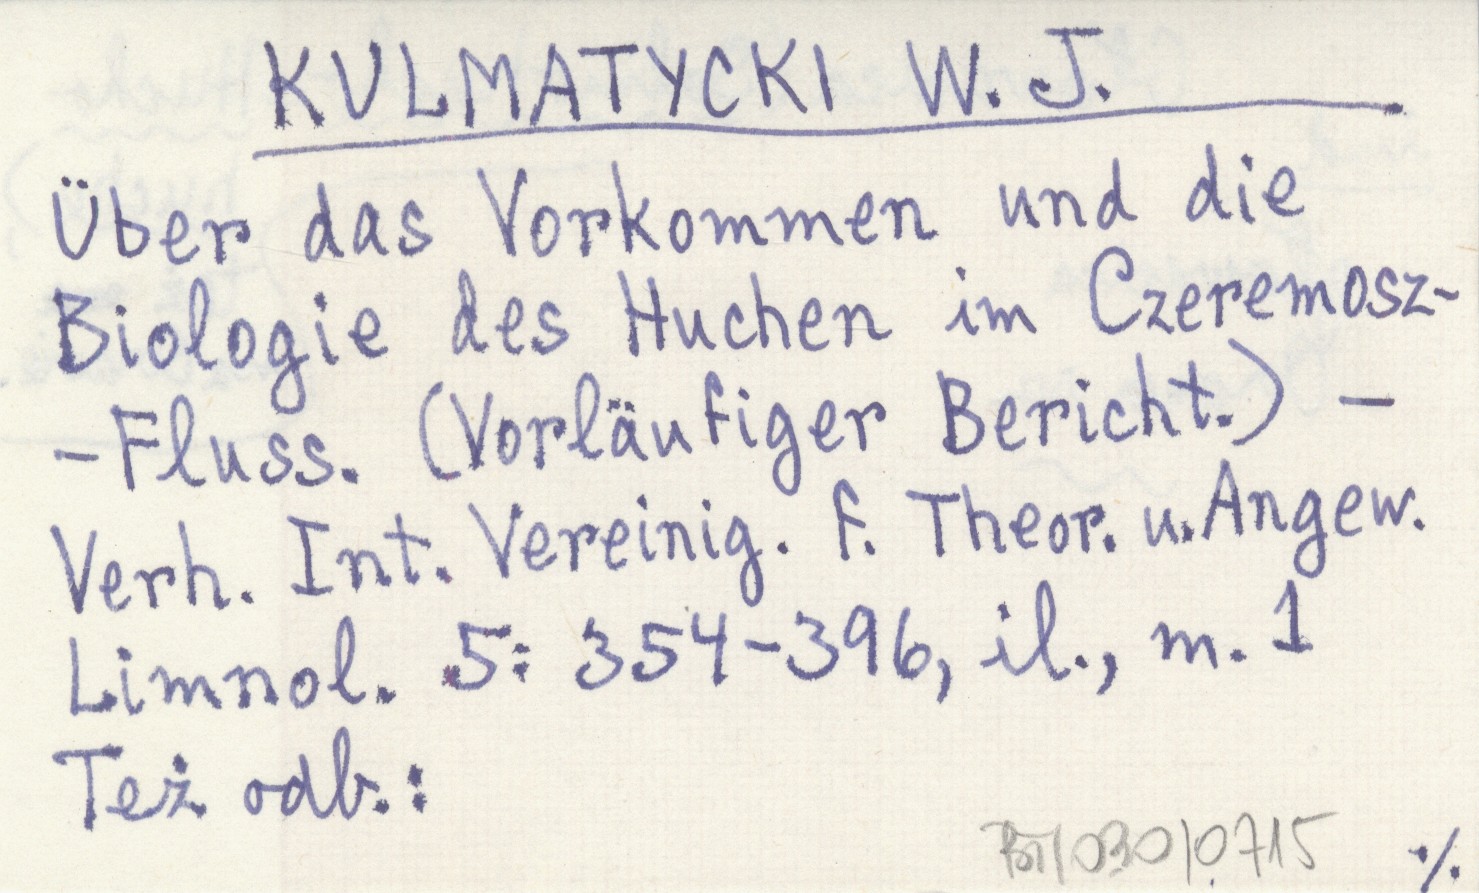 KULMATYCKI W. J.
Über das Vorkommen und die
Biologie des Huchen im Czeremosz-
-Fluss. (Vorläufiger Bericht.) -
Verh. Int. Vereinig. f. Theor. u. Angew.
Limnol. 5: 354-396, il., m. 1
Też odb.:
BI/030/0715 ./.